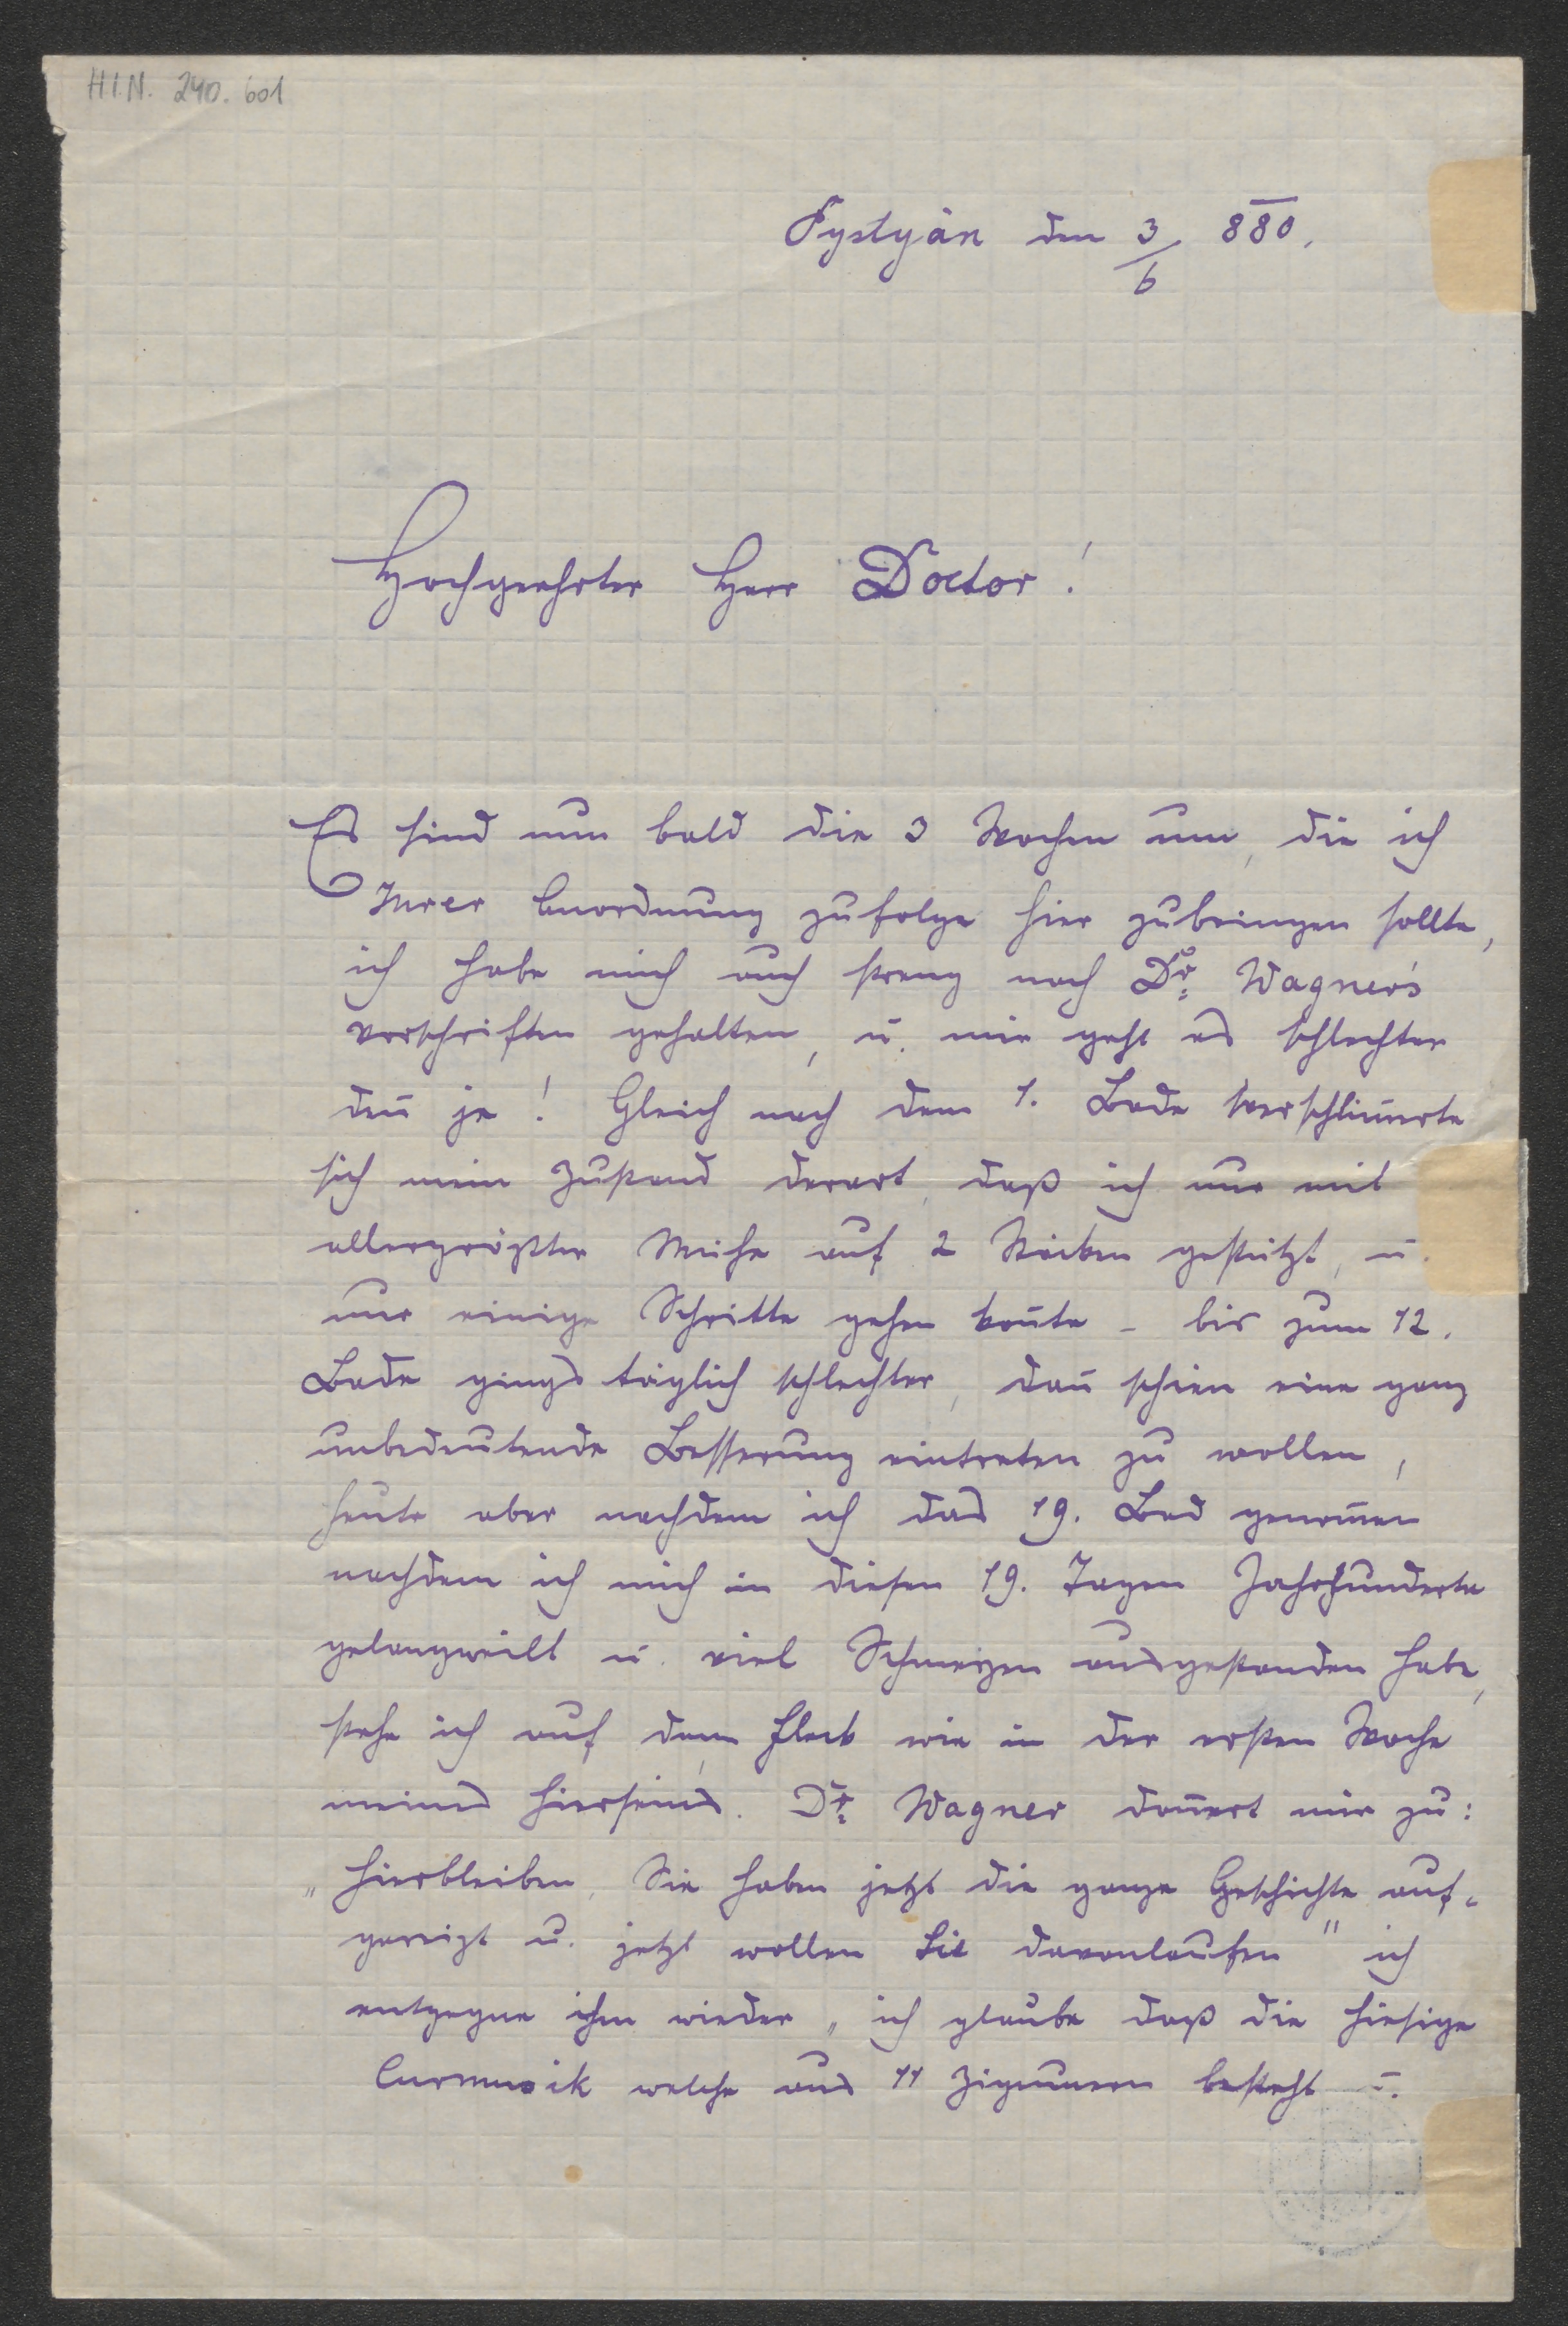 H.I.N. 240.601
Pystyán den 3/6 880.
Hochgeehrter Herr Doctor!
Es sind nun bald die 3 Wochen um, die ich
Ihrer Anordnung zufolge hier zubringen sollte,
ich habe mich auch streng nach Dr. Wagner's
Vorschriften gehalten, u. mir geht es schlechter
den̄ je! Gleich nach dem 1. Bade verschlim̄erte
sich mein Zustand derart, daß ich nur mit
allergrößter Mühe auf 2 Stöcken gestützt, u.
nur einige Schritte gehen kon̄te – bis zum 12.
Bade gings täglich schlechter, dan̄ schien eine ganz
unbedeutende Besserung eintreten zu wollen,
heute aber nachdem ich das 19. Bad genom̄en
nachdem ich mich in diesen 19. Tagen Jahrhunderte
gelangweilt u. viel Schmerzen ausgestanden habe,
stehe ich auf dem Fleck wie in der ersten Woche
meines Hierseins. Dr. Wagner don̄ert mir zu:
„Hierbleiben, Sie haben jetzt die ganze Geschichte auf-
gereizt u. jetzt wollen Sie davonlaufen" ich
entgegne ihm wieder „ich glaube daß die hiesige
Curmusik welche aus 11 Zigeunern besteht u.